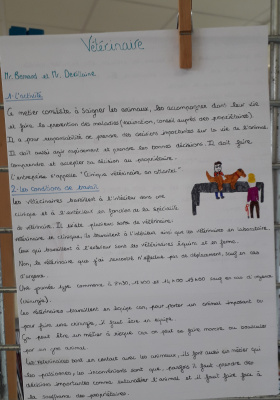 Vétérinaire
Mr Bernard et Mr Derlaine
1- L'activité
Ce métier consiste à soigner les animaux, les accompagner dans leur vie
et faire la prévention des maladies (vaccination, conseil auprès des propriétaires).
Il a pour responsabilité de prendre des décisions importantes sur la vie de l'animal
Il doit aussi agir rapidement et prendre les bonnes décisions. Il doit faire
comprendre et accepter sa décision au propriétaire.
L'entreprise s'appelle "Clinique vétérinaire en atlantes."
2- Les conditions de travail
Les vétérinaires travaillent à l'intérieur dans une
clinique et à l'extérieur en fonction de la spécialité
du vétérinaire. Il existe plusieurs sortes de vétérinaire:
vétérinaire en clinique, ils travaillent à l'intérieur ainsi que les vétérinaires en laboratoire.
Ceux qui travaillent à l'extérieur sont les vétérinaires équins et en ferme.
Non, le vétérinaire que j'ai rencontré n'effectue pas de déplacement, sauf en cas
d'urgence.
Les vétérinaires travaillent en équipe car, pour porter un animal imposant ou
pour faire une chirurgie, il faut être en équipe.
Ça peut être un métier à risque car on peut se faire mordre ou bousculer
par un gros animal.
Les vétérinaires sont en contact avec les animaux, ils font aussi ce métier qui
les passionnes, les inconvénients sont que parfois il faut prendre des
décisions importantes comme euthanasier l'animal et il faut faire face à
la confiance des propriétaires.